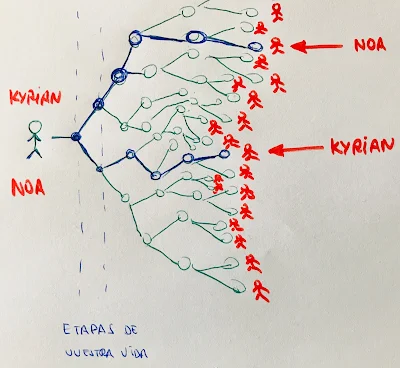 NOA
KYRIAN
KYRIAN
NOA
ETAPAS DE
NUESTRA VIDA